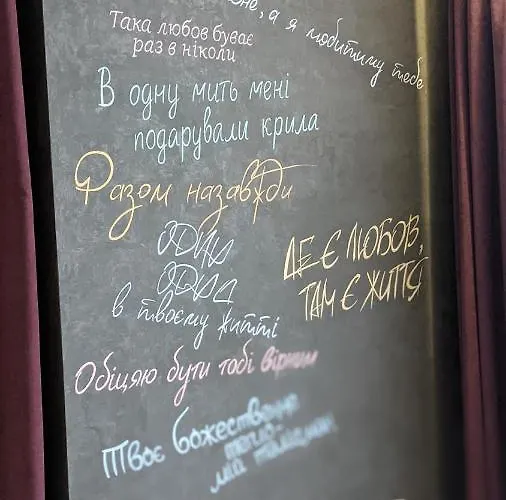 а я любитиму тебе
Така любов буває
раз в ніколи
В одну мить мені
подарували крила
Разом назавжди
в твоєму житті
ДЕ Є ЛЮБОВ,
ТАМ Є ЖИТТЯ
Обіцяю бути тобі вірним
Твоє божественне
тепло-
мій талісман